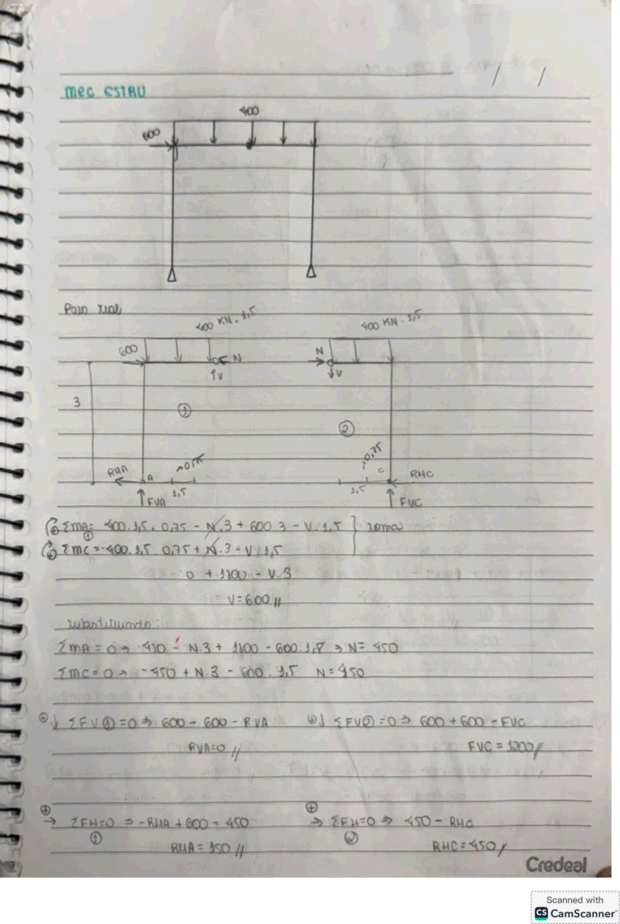 mec estru
400
600
400 KN . 1,5
400 KN . 1,5
600
N
N
V
V
3
1
2
0,75
0,75
RHA
A
C
RHC
1,5
1,5
FVA
FVC
ΣMA = 400.1,5. 0,75 - N.3 + 600.3 - V.1,5 } soma
1
ΣMC = -400.1,5. 0,75 + N.3 - V.1,5
0 + 1800 - V.3
V = 600 //
substituindo:
ΣMA = 0 → 450 - N.3 + 1800 - 600.1,5 → N = 450
ΣMC = 0 → -450 + N.3 - 600.1,5 N = 450
⊕↓ ΣFV① = 0 ⇒ 600 - 600 - RVA ⊕↓ ΣFV② = 0 ⇒ 600 + 600 - FVC
RVA = 0 // FVC = 1200 //
⊕→ ΣFH = 0 ⇒ -RHA + 600 - 450 ⊕→ ΣFH = 0 ⇒ 450 - RHC
① RHA = 150 // ② RHC = 450 //
Credeal
Scanned with
CS CamScanner